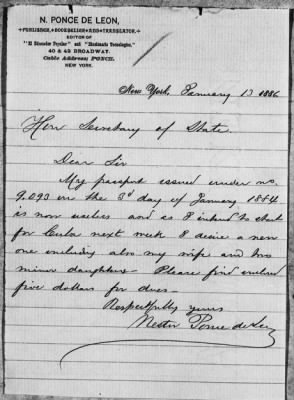 N. PONCE DE LEON,
PUBLISHER, BOOKSELLER AND TRANSLATOR.
EDITOR OF
"El Educador Popular" and "Diccionario Tecnologico,"
40 & 42 BROADWAY.
Cable Address; PONCE.
NEW YORK.
New York, January 13 1886
Hon Secretary of State.
Dear Sir
My passport issued under no.
9.093 on the 3d day of January 1884
is now useless and as I intend to start
for Cuba next week I desire a new
one including also my wife and two
minor daughters - Please find enclosed
five dollars for dues -
Respectfully yours
Nestor Ponce de Leon